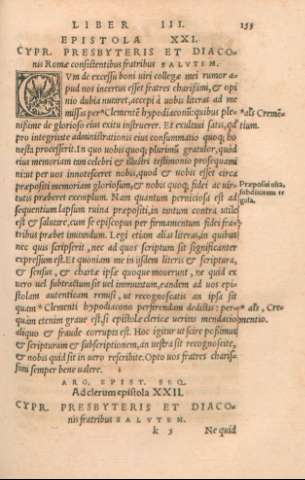 LIBER III. 255
EPISTOLA XXI.
CYPR. PRESBYTERIS ET DIACO-
nis Romæ consistentibus fratribus SALVTEM.
CVm de excessu boni uiri collegæ mei rumor a-
pud nos incertus esset fratres charissimi, & opi
nio dubia nutaret, accepi à uobis literas ad me
missas per *Clementē hypodiaconū: quibus ple-
nissime de glorioso eius exitu instruerer. Et exultaui satis, qd
pro integritate administrationis eius consummatio quoq; ho
nesta processerit. In quo uobis quoq; plurimū gratulor, quod
eius memoriam tam celebri & illustri testimonio prosequami
nisi: per uos innotesceret nobis, quod & uobis esset circa
præpositi memoriam gloriosum, & nobis quoq; fidei ac uir-
tutis præberet exemplum. Nam quantum perniciosa est ad
sequentium lapsum ruina præpositi, in tantum contra utile
est & salutare, cum se episcopus per firmamentum fidei fra-
tribus præbet imitandum. Legi etiam alias literas, in quibus
nec quis scripserit, nec ad quos scriptum sit significanter
expressum est. Et quoniam me in iisdem literis & scriptura,
& sensus, & charta ipsa quoque mouerunt, ne quid ex
uero uel subtractum sit uel immutatum, eandem ad uos epi-
stolam autenticam remisi, ut recognoscatis an ipsa sit
quam *Clementi hypodiacono perferendam dedistis: per-
quàm etenim graue est, si epistolæ clericæ ueritas mendacio
aliquo & fraude corrupta est. Hoc igitur ut scire possimus,
& scripturam & subscriptionem, an uestra sit recognoscite,
& nobis quid sit in uero rescribite. Opto uos fratres charis-
simi semper bene ualere.
ARG. EPIST. SEQ.
Ad clerum epistola XXII.
CYPR. PRESBYTERIS ET DIACO-
nis fratribus SALVTEM.
k 3 Ne quid
*als Cremē
tium.
Præpositi uita,
subditorum re
gula.
*als, Cre-
mentio.